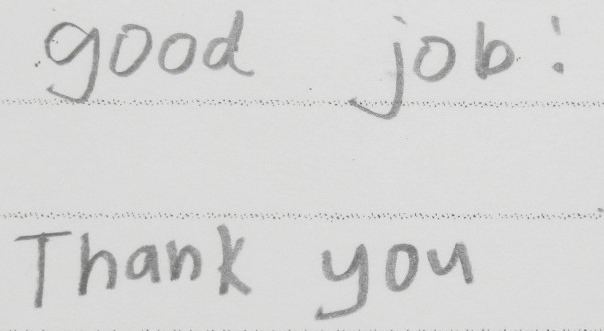 good job!
Thank you